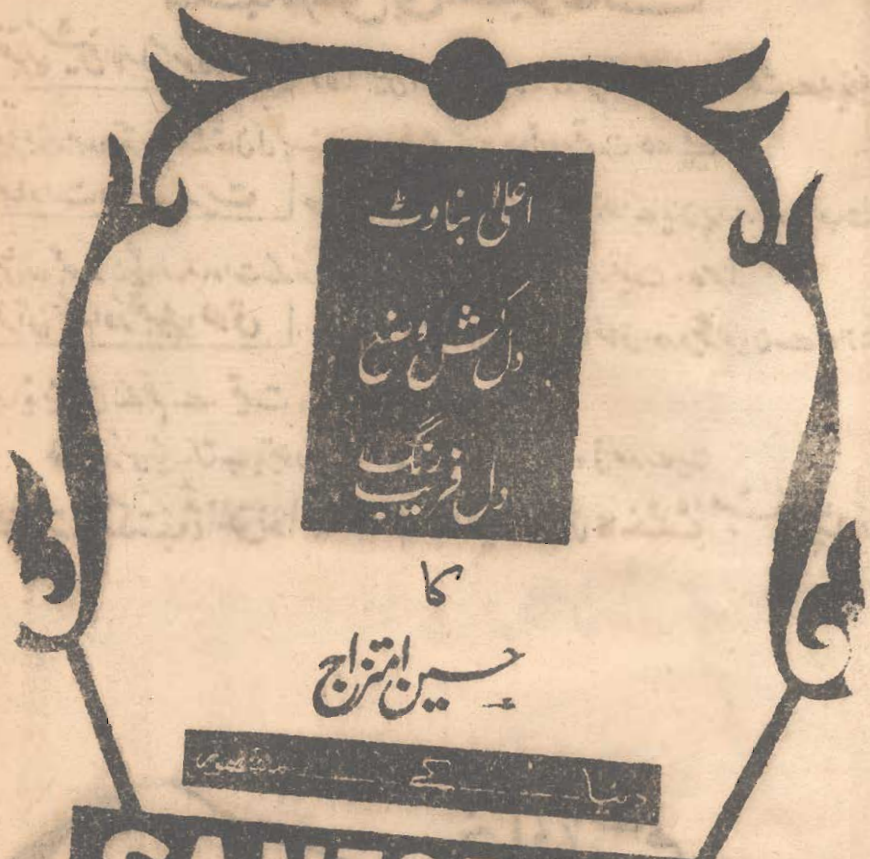 اعلیٰ بناوٹ
دل کش وضع
دل فریب رنگ
کا
حسین امتزاج
دنیا کے
SANFO